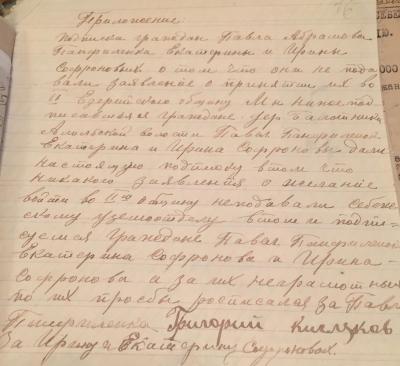 76
Приложение
подписка граждан Павла Абрамова
Панфиленка Екатерины и Ирины
Софроновых о том что они не пода
вали заявление о принятии их во
II Езерийскую общину Мы нижепод
писавшиеся граждане дер.
волости Павел Панфиленок
Екатерина и Ирина Софроновы дали
настоящую подписку в том что
никакого заявления о желание
войти во II-ю общину неподавали Себеж
скому уземотделу в том и подпи
суемся граждане Павел Панфиленок
Екатерина Софронова и Ирина
Софронова а за их неграмотных
по их прозбы росписался за Павла
Панфиленка Григорий Кисляков
За Ирину и Екатерину Софроновых.
СЕБЕ